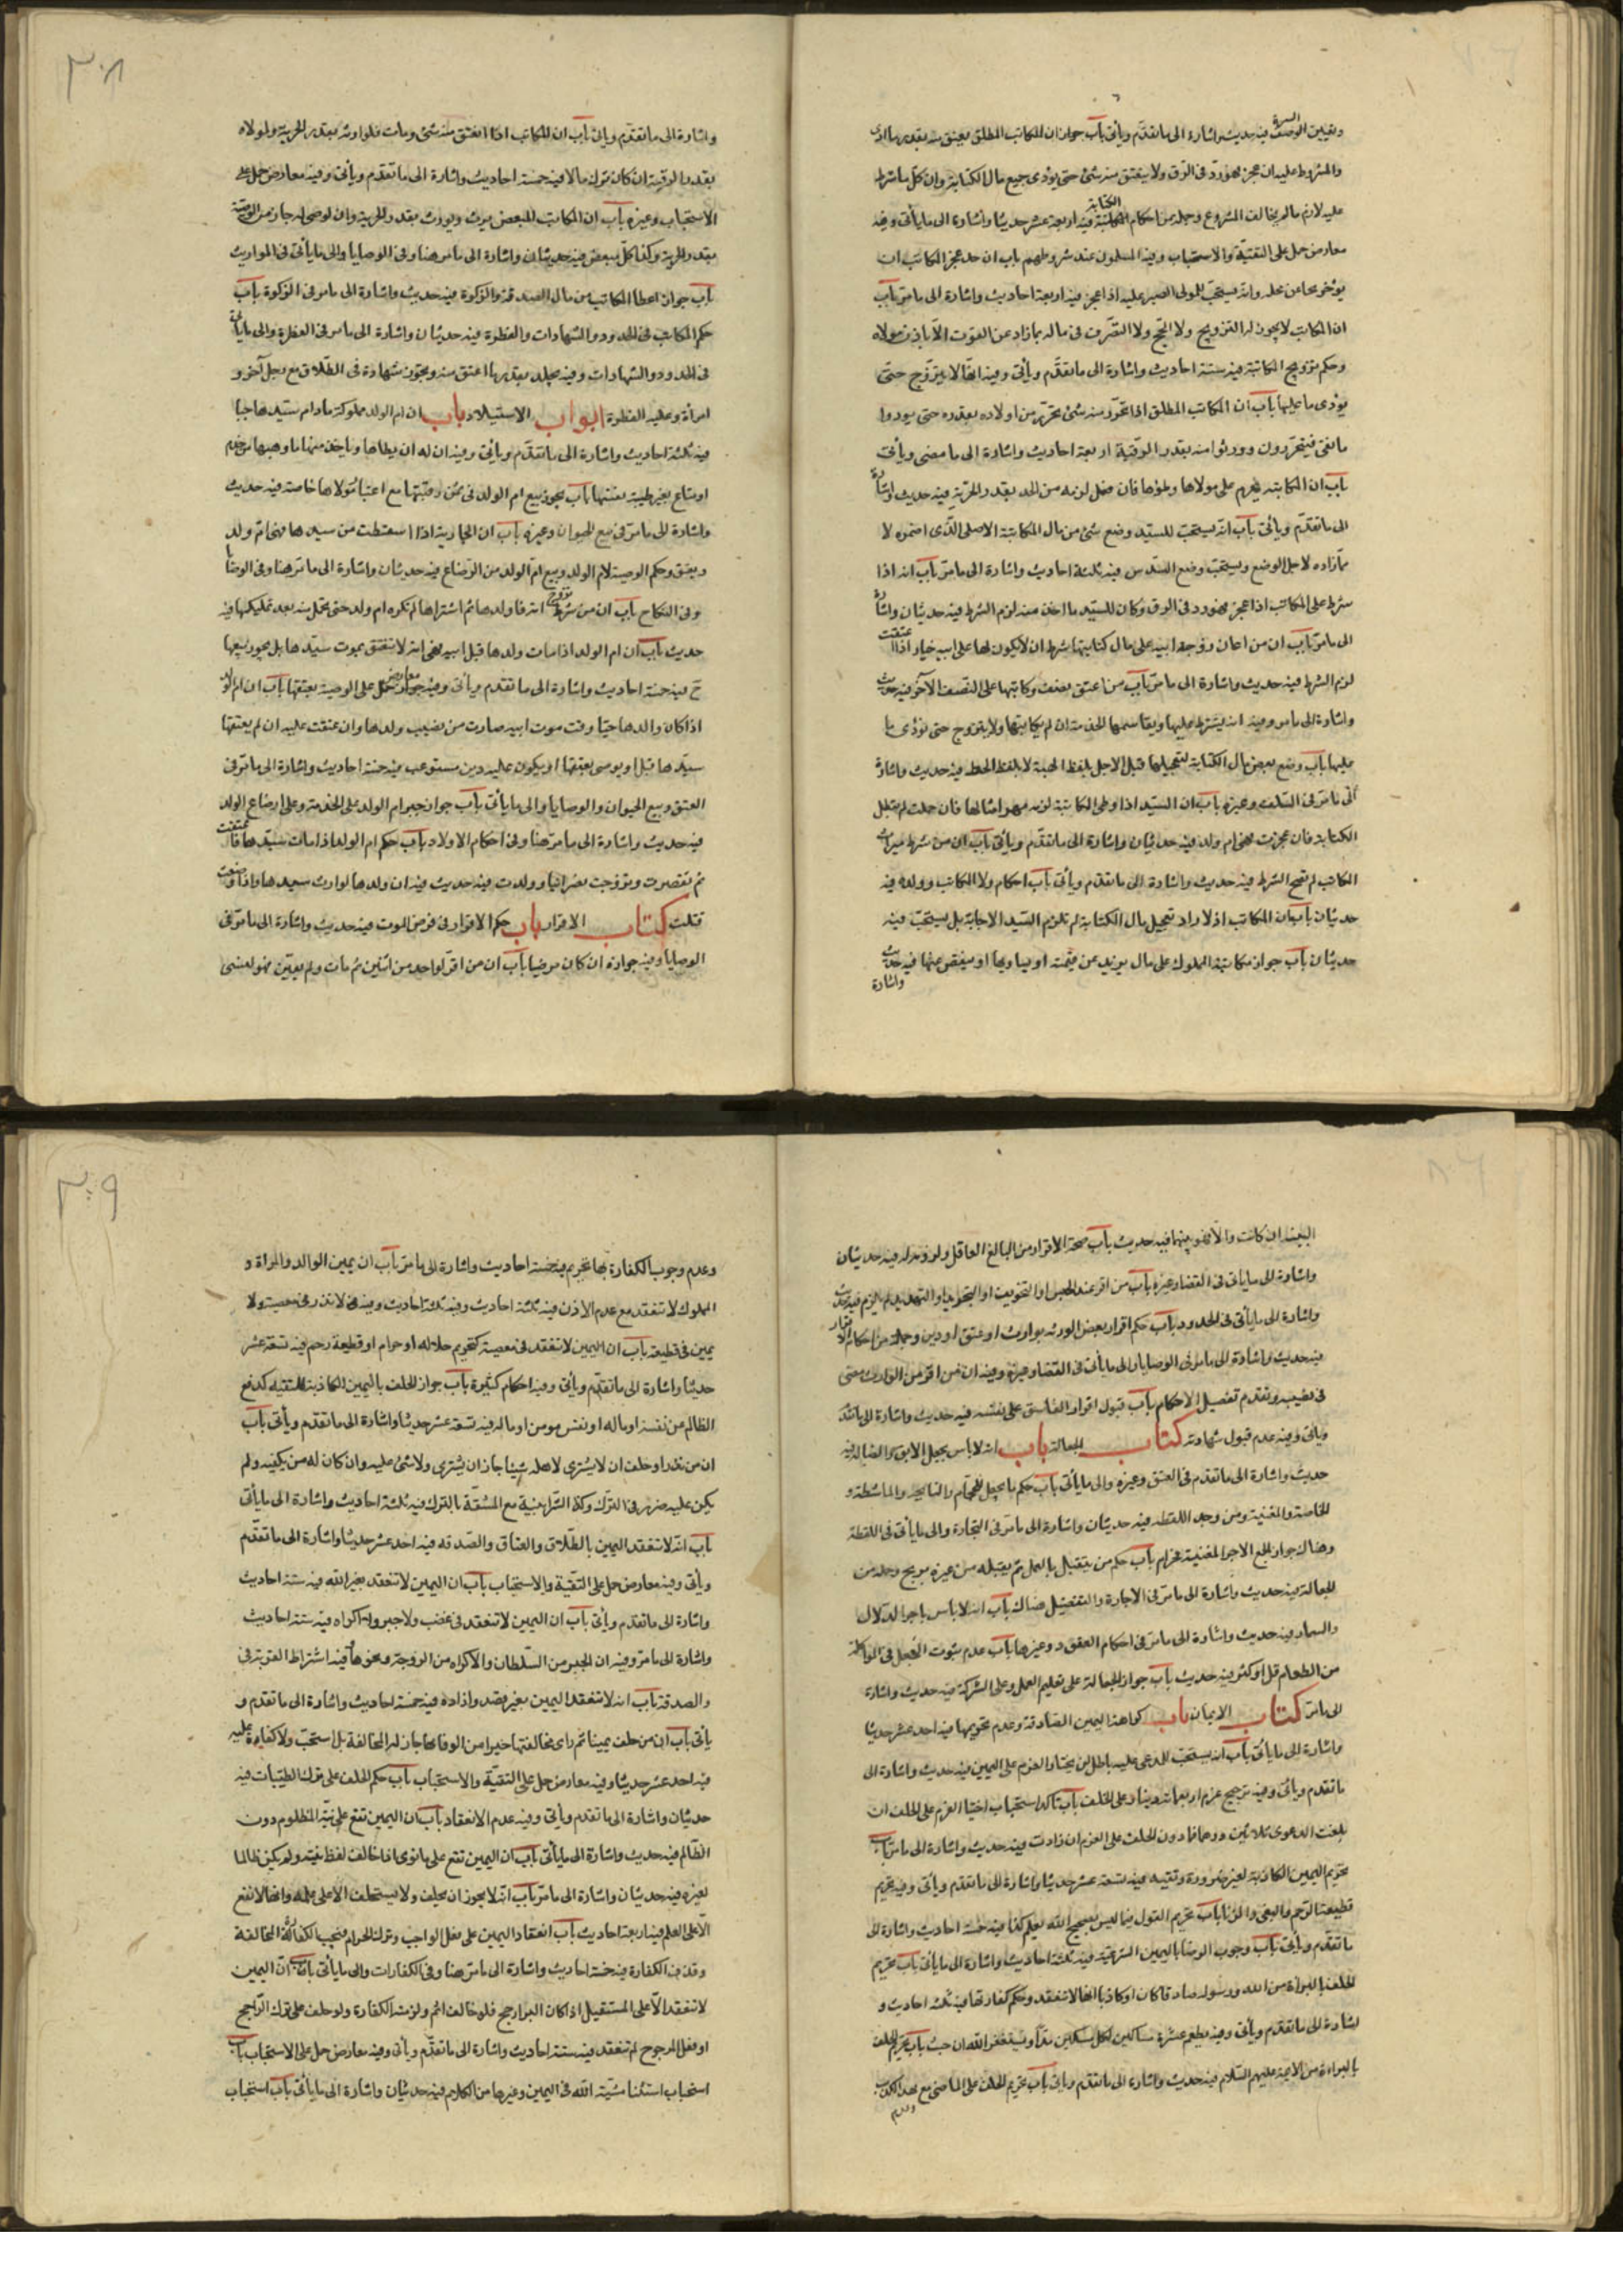 وتعيين الوصف فيه حديث واشارة الى ما تقدّم ويأتى باب جواز ان المكاتب المطلق يعتق منه بقدر ما ادى
والمشروط عليه ان عجز فهو ردّ فى الرّق ولا ينعتق منه شئ حتى يؤدى جميع مال الكتابة وان كل ما شرط
عليه لازم ما لم يخالف المشروع وجملة من احكام الكتابة فيه اربعة عشر حديثا واشارة الى ما يأتى وفيه
معارض حمل على التقيّة والاستحباب وفيه المسلمون عند شروطهم باب ان حد عجز المكاتب ان
يؤخر نجما عن محله وانه يستحبّ للمولى الصبر عليه اذا عجز فيه اربعة احاديث واشارة الى ما مرّ باب
ان المكاتب لا يجوز له التزويج ولا الحج ولا التصرّف فى ماله بما زاد عن القوت الّا باذن مولاه
وحكم تزويج المكاتبة فيه ستة احاديث واشارة الى ما تقدّم ويأتى وفيه انّها لا تتزوّج حتى
يؤدى ما عليها باب ان المكاتب المطلق اذا تحرّر منه شئ تحرّر من اولاده بقدره حتى يودوا
ما بقى فيتحررون وورثوا منه بقدر الرقية اربعة احاديث واشارة الى ما مضى ويأتى
باب ان المكاتبة يحرم على مولاها وطؤها فان فعل لزمه من الحد بقدر الحرّية فيه حديث واشارة
الى ما تقدّم ويأتى باب انه يستحبّ للسيّد وضع شئ من مال المكاتبة الاصلى الّذى اضمره لا
ممّا زاده لاجل الوضع ويستحبّ وضع السّدس فيه ثلثة احاديث واشارة الى ما مرّ باب انه اذا
شرط على المكاتب اذا عجز فهو رد فى الرق وكان للسيّد ما اخذ منه لزم الشرط فيه حديثان واشارة
الى ما مرّ باب ان من اعان زوجة ابيه على مال كتابتها شرط ان لا يكون لها على ابيه خيار اذا اعتقت
لزم الشرط فيه حديث واشارة الى ما مرّ باب من اعتق نصف وكاتبها على النّصف الآخر فيه حديث
واشارة الى ما مر وفيه انه يشترط عليها ويقاسمها الخدمة ان لم يكاتبها ولا يتزوج حتى تؤدى ما
عليها باب وضع بعض مال الكتابة لتعجيلها قبل الاجل بلفظ الهبة لا بلفظ الحط فيه حديث واشارة
الى ما مرّ فى السّلف وغيره باب ان السيّد اذا وطى المكاتبة لزمه مهر امثالها فان حملت لم تبطل
الكتابة فان عجزت فهى ام ولد فيه حديثان واشارة الى ما تقدّم ويأتى باب ان من شرط ميراث
المكاتب لم تصح الشرط فيه حديث واشارة الى ما تقدّم ويأتى باب احكام ولاء المكاتب وولده فيه
حديثان باب ان المكاتب اذا اراد تعجيل مال الكتابة لم تلزم السّيد الاجابة بل يستحبّ فيه
حديثان باب جواز مكاتبة المملوك على مال يزيد عن قيمته او يساويها او ينقص عنها فيه حديث
واشارة
٣٠٨
واشارة الى ما تقدّم ويأتى باب ان المكاتب اذا انعتق منه شئ ومات فلوارثه بقدر الحرية ولمولاه
بقدر الرقية ان كان ترك مالا فيه خمسة احاديث واشارة الى ما تقدّم ويأتى وفيه معارض حمل على
الاستحباب وغيره باب ان المكاتب المبعض يرث ويورث بقدر الحرية وان اوصى له جاز من الوصية
بقدر الحرية وكذا كلّ مبعض فيه حديثان واشارة الى ما مر هنا وفى الوصايا والى ما يأتى فى المواريث
باب جواز اعطاء المكاتب من مال الصدقة والزكوة فيه حديث واشارة الى ما مر فى الزكوة باب
حكم المكاتب فى الحدود والشهادات والفطرة فيه حديثان واشارة الى ما مر فى الفطرة والى ما يأتى
فى الحدود والشهادات وفيه يجلد بقدر ما اعتق منه ويجوز شهادة فى الطّلاق مع رجل آخر و
امرأة وعليه الفطرة ابواب الاستيلاد باب ان ام الولد مملوكة ما دام سيّدها حيا
فيه ثلثة احاديث واشارة الى ما تقدّم ويأتى وفيه ان له ان يطأها ويأخذ منها ما وهبها من خدم
او متاع بغير طيبة نفسها باب يجوز بيع ام الولد فى ثمن رقبتها مع اعسار مولاها خاصة فيه حديث
واشارة الى ما مرّ فى بيع الحيوان وغيره باب ان الجارية اذا اسقطت من سيدها فهى ام ولد
ويعتق وحكم الوصية لام الولد وبيع ام الولد من الرّضاع فيه حديثان واشارة الى ما مرّ هنا وفى الوصايا
وفى النكاح باب ان من شرط تزوج امة فاولدها ثم اشتراها لم تكن ام ولد حتى تحمل منه بعد تمليكها فيه
حديث باب ان ام الولد اذا مات ولدها قبل ابيه فهى امة لا تنعتق بموت سيّدها بل يجوز بيعها
ح فيه خمسة احاديث واشارة الى ما تقدم ويأتى وفيه معارض حمل على الوصية بعتقها باب ان ام الولد
اذا كان ولدها حيّا وقت موت ابيه صارت من نصيب ولدها وان عتقت عليه ان لم يعتقها
سيّدها قبل او يوصى بعتقها او يكون عليه دين مستوعب فيه خمسة احاديث واشارة الى ما مرّ فى
العتق وبيع الحيوان والوصايا والى ما يأتى باب جواز جبر ام الولد على الخدمة وعلى ارضاع الولد
فيه حديث واشارة الى ما مرّ هنا وفى احكام الاولاد باب حكم ام الولد اذا مات سيّدها فاعتقت
ثم تنصرت وتزوّجت نصرانيا وولدت فيه حديث فيه ان ولدها لوارث سيدها واذا وضعت
قتلت كتاب الاقرار باب حكم الاقرار فى مرض الموت فيه حديث واشارة الى ما مرّ فى
الوصايا وفيه جوازه ان كان مرضيا باب ان من اقرّ لواحد من اثنين ثم مات ولم يعيّن فهو لصاحب
البينة ان كانت والّا فهو بينهما فيه حديث باب صحة الاقرار من البالغ العاقل ولزومه له فيه حديثان
واشارة الى ما يأتى فى القضاء وغيره باب من اقر عند الحبس او التخويف او التجريد او التهديد لم يلزم فيه حديث
واشارة الى ما يأتى فى الحدود باب حكم اقرار بعض الورثة بوارث او عتق او دين وجملة من احكام الاقرار
فيه حديث واشارة الى ما مر فى الوصايا والى ما يأتى فى القضاء وغيره وفيه ان من اقر من الوارث مضى
فى نصيبه وتقدم تفصيل الاحكام باب قبول اقرار الفاسق على نفسه فيه حديث واشارة الى ما تقدم
ويأتى وفيه عدم قبول شهادته كتاب الجعالة باب انه لا باس بجعل الابق والضالة فيه
حديث واشارة الى ما تقدم فى العتق وغيره والى ما يأتى باب حكم ما يجعل للحجام والنايحة والماشطة و
الخافضة والمغنية ومن وجد اللقطة فيه حديثان واشارة الى ما مرّ فى التجارة والى ما يأتى فى اللقطة
وهناك جواز الجمع الا اجر المغنية فحرام باب حكم من يتقبل بالعمل ثم يقبله من غيره بربح وجملة من
الجعالة فيه حديث واشارة الى ما مرّ فى الاجارة والتفصيل هناك باب انه لا باس باجر الدّلال
والسمسار فيه حديث واشارة الى ما مرّ فى احكام العقود وغيرها باب عدم ثبوت الجعل فى المواكلة
من الطعام قل او كثر فيه حديث باب جواز الجعالة على تعليم العمل وعلى الشركة فيه حديث واشارة
الى ما مرّ كتاب الايمان باب كراهة اليمين الصّادقة وعدم تحريمها فيه احد عشر حديثا
واشارة الى ما يأتى باب انه يستحبّ للمدعى عليه باطل ان يختار الغرم على اليمين فيه حديث واشارة الى
ما تقدم ويأتى وفيه ترجيح غرم اربعمائة دينار على الحلف باب تأكد استحباب اختيار الغرم على الحلف ان
بلغت الدعوى ثلاثين درهما فما دون الحلف على الغرم ان زادت فيه حديث واشارة الى ما مرّ باب
تحريم اليمين الكاذبة لغير ضرورة وتقية فيه تسعة عشر حديثا واشارة الى ما تقدم ويأتى وفيه تحريم
قطيعة الرّحم والبغى والزنا باب تحريم القول فيما ليس بصحيح الله يعلم كذا فيه خمسة احاديث واشارة الى
ما تقدّم ويأتى باب وجوب الرضا باليمين الشرعيّة فيه ثلثة احاديث واشارة الى ما يأتى باب تحريم
الحلف بالبراءة من الله ورسوله صادقا كان او كاذبا وانّها لا تنعقد وحكم كفارتها فيه ثلثة احاديث و
اشارة الى ما تقدّم ويأتى وفيه يطعم عشرة مساكين لكل مسكين مدّ او يستغفر الله ان حنث باب تحريم الحلف
بالبراءة من الائمة عليهم السّلام فيه حديث واشارة الى ما تقدم ويأتى باب تحريم الحلف على الماضى مع تعمد الكذب
وعدم
٣٠٩
وعدم وجوب الكفارة بها بحرم فيه خمسة احاديث واشارة الى ما مرّ باب ان يمين الوالد والمراة و
المملوك لا تنعقد مع عدم الاذن فيه ثلثة احاديث وفيه ثلثة احاديث وفيه لا نذر فى معصية ولا
يمين فى قطيعة باب ان اليمين لا تنعقد فى معصية كتحريم حلاله او حرام او قطيعة رحم فيه تسعة عشر
حديثا واشارة الى ما تقدّم ويأتى وفيه احكام كثيرة باب جواز الحلف باليمين الكاذبة للتقية كدفع
الظالم عن نفسه او ماله او نفس مومن او ماله فيه تسعة عشر حديثا واشارة الى ما تقدّم ويأتى باب
ان من نذر او حلف ان لا يشترى لاهله شيئا جاز ان يشترى ولا شئ عليه وان كان له من يكفيه ولم
يكن عليه ضرر فى الترك وكذا الشراء بنسية مع المشقّة بالترك فيه ثلثة احاديث واشارة الى ما يأتى
باب انّه لا تنعقد اليمين بالطّلاق والعتاق والصدقة فيه احد عشر حديثا واشارة الى ما تقدّم
ويأتى وفيه معارض حمل على التقيّة والاستحباب باب ان اليمين لا تنعقد بغير الله فيه ستة احاديث
واشارة الى ما تقدّم ويأتى باب ان اليمين لا تنعقد فى غضب ولا جبر ولا اكراه فيه ستة احاديث
واشارة الى ما مرّ وفيه ان الجبر من السّلطان والاكراه من الزوجة ونحوها فيه اشتراط القربة فى
والصدقة باب انه لا تنعقد اليمين بغير قصد وارادة فيه خمسة احاديث واشارة الى ما تقدم و
يأتى باب ان من حلف يمينا ثم راى مخالفتها خيرا من الوفاء بها جاز له المخالفة بل استحب ولا كفارة عليه
فيه احد عشر حديثا وفيه معارض حمل على التقيّة والاستحباب باب حكم الحلف على ترك الطيّبات فيه
حديثان واشارة الى ما تقدم ويأتى وفيه عدم الانعقاد باب ان اليمين تقع على نيّة المظلوم دون
الظّالم فيه حديث واشارة الى ما يأتى باب ان اليمين تقع على ما نوى اذا خالف لفظ نيته ولم يكن ظالما
لغيره فيه حديثان واشارة الى ما مرّ باب انّه لا يجوز ان يحلف ولا يستحلف الا على علمه وانّها لا تقع
الّا على العلم فيه اربعة احاديث باب انعقاد اليمين على فعل الواجب وترك الحرام فيجب الكفارة المخالفة
وقدر الكفارة فيه خمسة احاديث واشارة الى ما مرّ هنا وفى الكفارات والى ما يأتى باب انّ اليمين
لا تنعقد الّا على المستقبل اذا كان البر ارجح فلو خالف اثم ولزمته الكفارة ولو حلف على ترك الرّاجح
او فعل المرجوح لم تنعقد فيه ستة احاديث واشارة الى ما تقدّم ويأتى وفيه معارض حمل على الاستحباب باب
استحباب استثناء مشيّة الله فى اليمين وغيرها من الكلام فيه حديثان واشارة الى ما يأتى باب استحباب